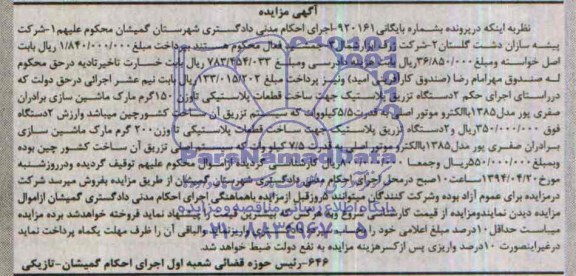 آگهی مزایده
نظر به اینکه در پرونده بشماره بایگانی ۹۲۰۱۶۱-اجرای احکام مدنی دادگستری شهرستان گمیشان محکوم علیهم ۱-شرکت
پیشه سازان دشت گلستان ۲-شرکت فعال محکوم هستند بپرداخت مبلغ ۱/۸۴۰/۰۰۰/۰۰۰ ریال بابت
اصل خواسته ومبلغ ۳۶/۸۵۰/۰۰۰ریال بابت هزینه دادرسی ومبلغ ۷۸۳/۴۵۴/۰۳۳ ریال بابت خسارت تاخیرتادیه درحق محکوم
له صندوق مهرامام رضا (صندوق کارآفرینی امید) ونیز پرداخت مبلغ ۱۳۳/۰۱۵/۲۰۲ ریال بابت نیم عشر اجرائی درحق دولت که
درراستای اجرای حکم ۲دستگاه تزریق پلاستیک جهت ساخت قطعات پلاستیکی تاوزن ۱۵۰گرم مارک ماشین سازی برادران
صفری پور مدل۱۳۸۵باالکترو موتور اصلی به قدرت۵/۵کیلووات که سیستم تزریق آن ساخت کشورچین میباشد وارزش ۲دستگاه
فوق ۳۵۰/۰۰۰/۰۰۰ریال و۲دستگاه تزریق پلاستیک جهت ساخت قطعات پلاستیکی تاوزن۲۰۰ گرم مارک ماشین سازی
برادران صفری پور مدل ۱۳۸۵باالکترو موتور اصلی به قدرت ۷/۵ کیلووات که سیستم اصلی تزریق آن ساخت کشور چین بوده
وبمبلغ ۵۵۰/۰۰۰/۰۰۰ریال وجمعا محکوم علیهم توقیف گردیده ودرروزشنبه
مورخ۱۳۹۴/۰۴/۲۰ ساعت ۱۰صبح درمحل اجرای احکام مدنی دادگستری شهرستان گمیشان از طریق مزایده بفروش میرسد شرکت
درمزایده برای عموم آزاد بوده وشرکت کنندگان میتوانند ۵روزقبل ازمزایده باهماهنگی اجرای احکام مدنی دادگستری گمیشان ازاموال
مزایده دیدن نمایند ومزایده از قیمت کارشناسی شروع وبه هرکس نماید فروخته خواهدشد برنده مزایده
میباست حداقل ۱۰درصد مبلغ اعلامی خود را واریز نماید والباقی آن را ظرف مهلت یکماه پرداخت نماید
درغیراینصورت ۱۰درصد واریزی پس ازکسرهزینه مزایده به نفع دولت ضبط خواهد شد.
۶۴۶-رئیس حوزه قضائی شعبه اول اجرای احکام گمیشان-تازیکی
ParsNamadData
پایگاه اطلاع رسانی مناقصه و مزایده